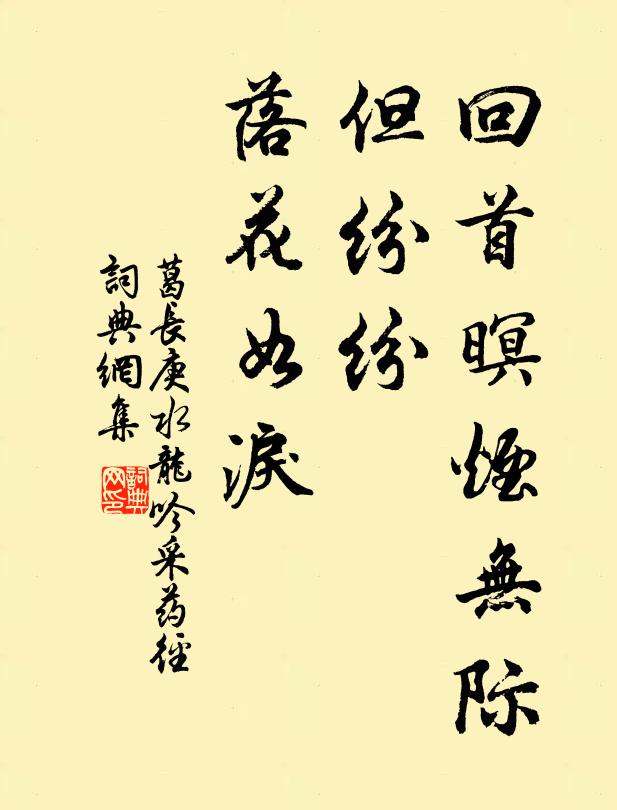 回首暝煙無际
但纷纷
落花如淚
葛長庚水龍吟采药徑
詞典網集
詞典网印